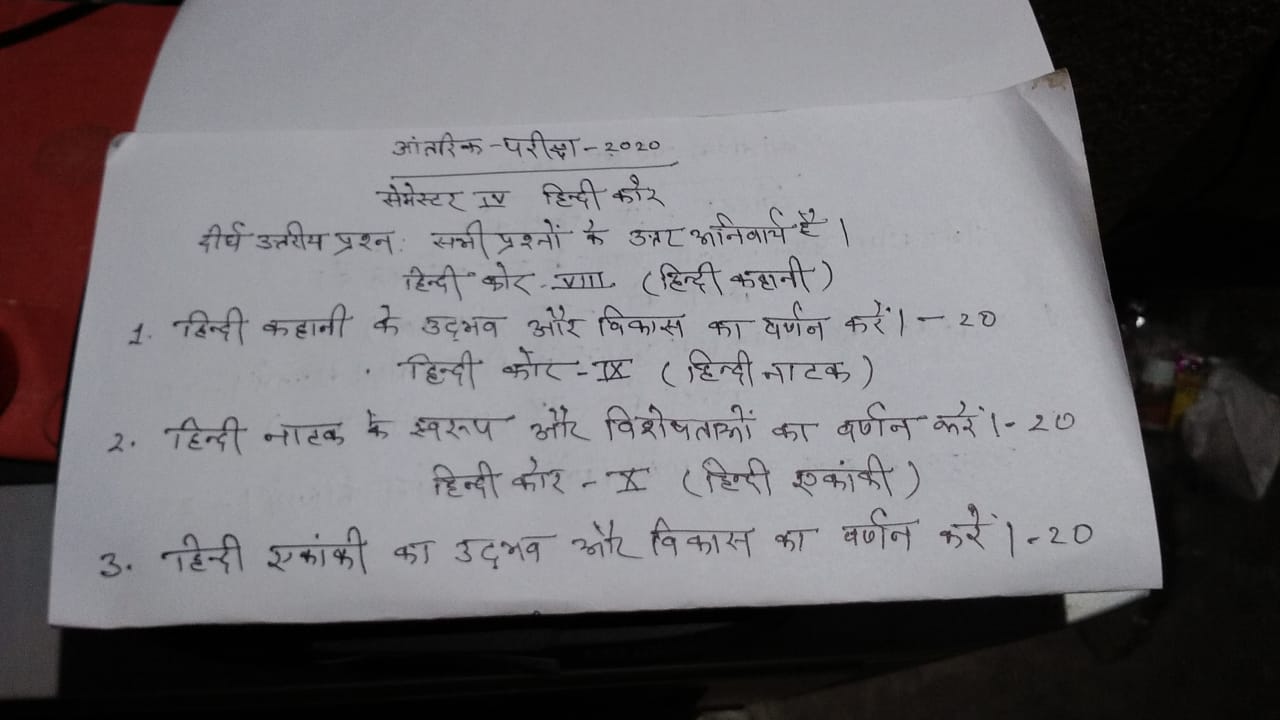 आंतरिक-परीक्षा-२०२०
सेमेस्टर IV हिन्दी कोर
दीर्घ उत्तरीय प्रश्न: सभी प्रश्नों के उत्तर अनिवार्य है।
हिन्दी कोर-VIII (हिन्दी कहानी)
1. हिन्दी कहानी के उद्भव और विकास का वर्णन करें।-20
हिन्दी कोर-IX (हिन्दी नाटक)
2. हिन्दी नाटक के स्वरूप और विशेषताओं का वर्णन करें।-20
हिन्दी कोर-X (हिन्दी एकांकी)
3. हिन्दी एकांकी का उद्भव और विकास का वर्णन करें।-20